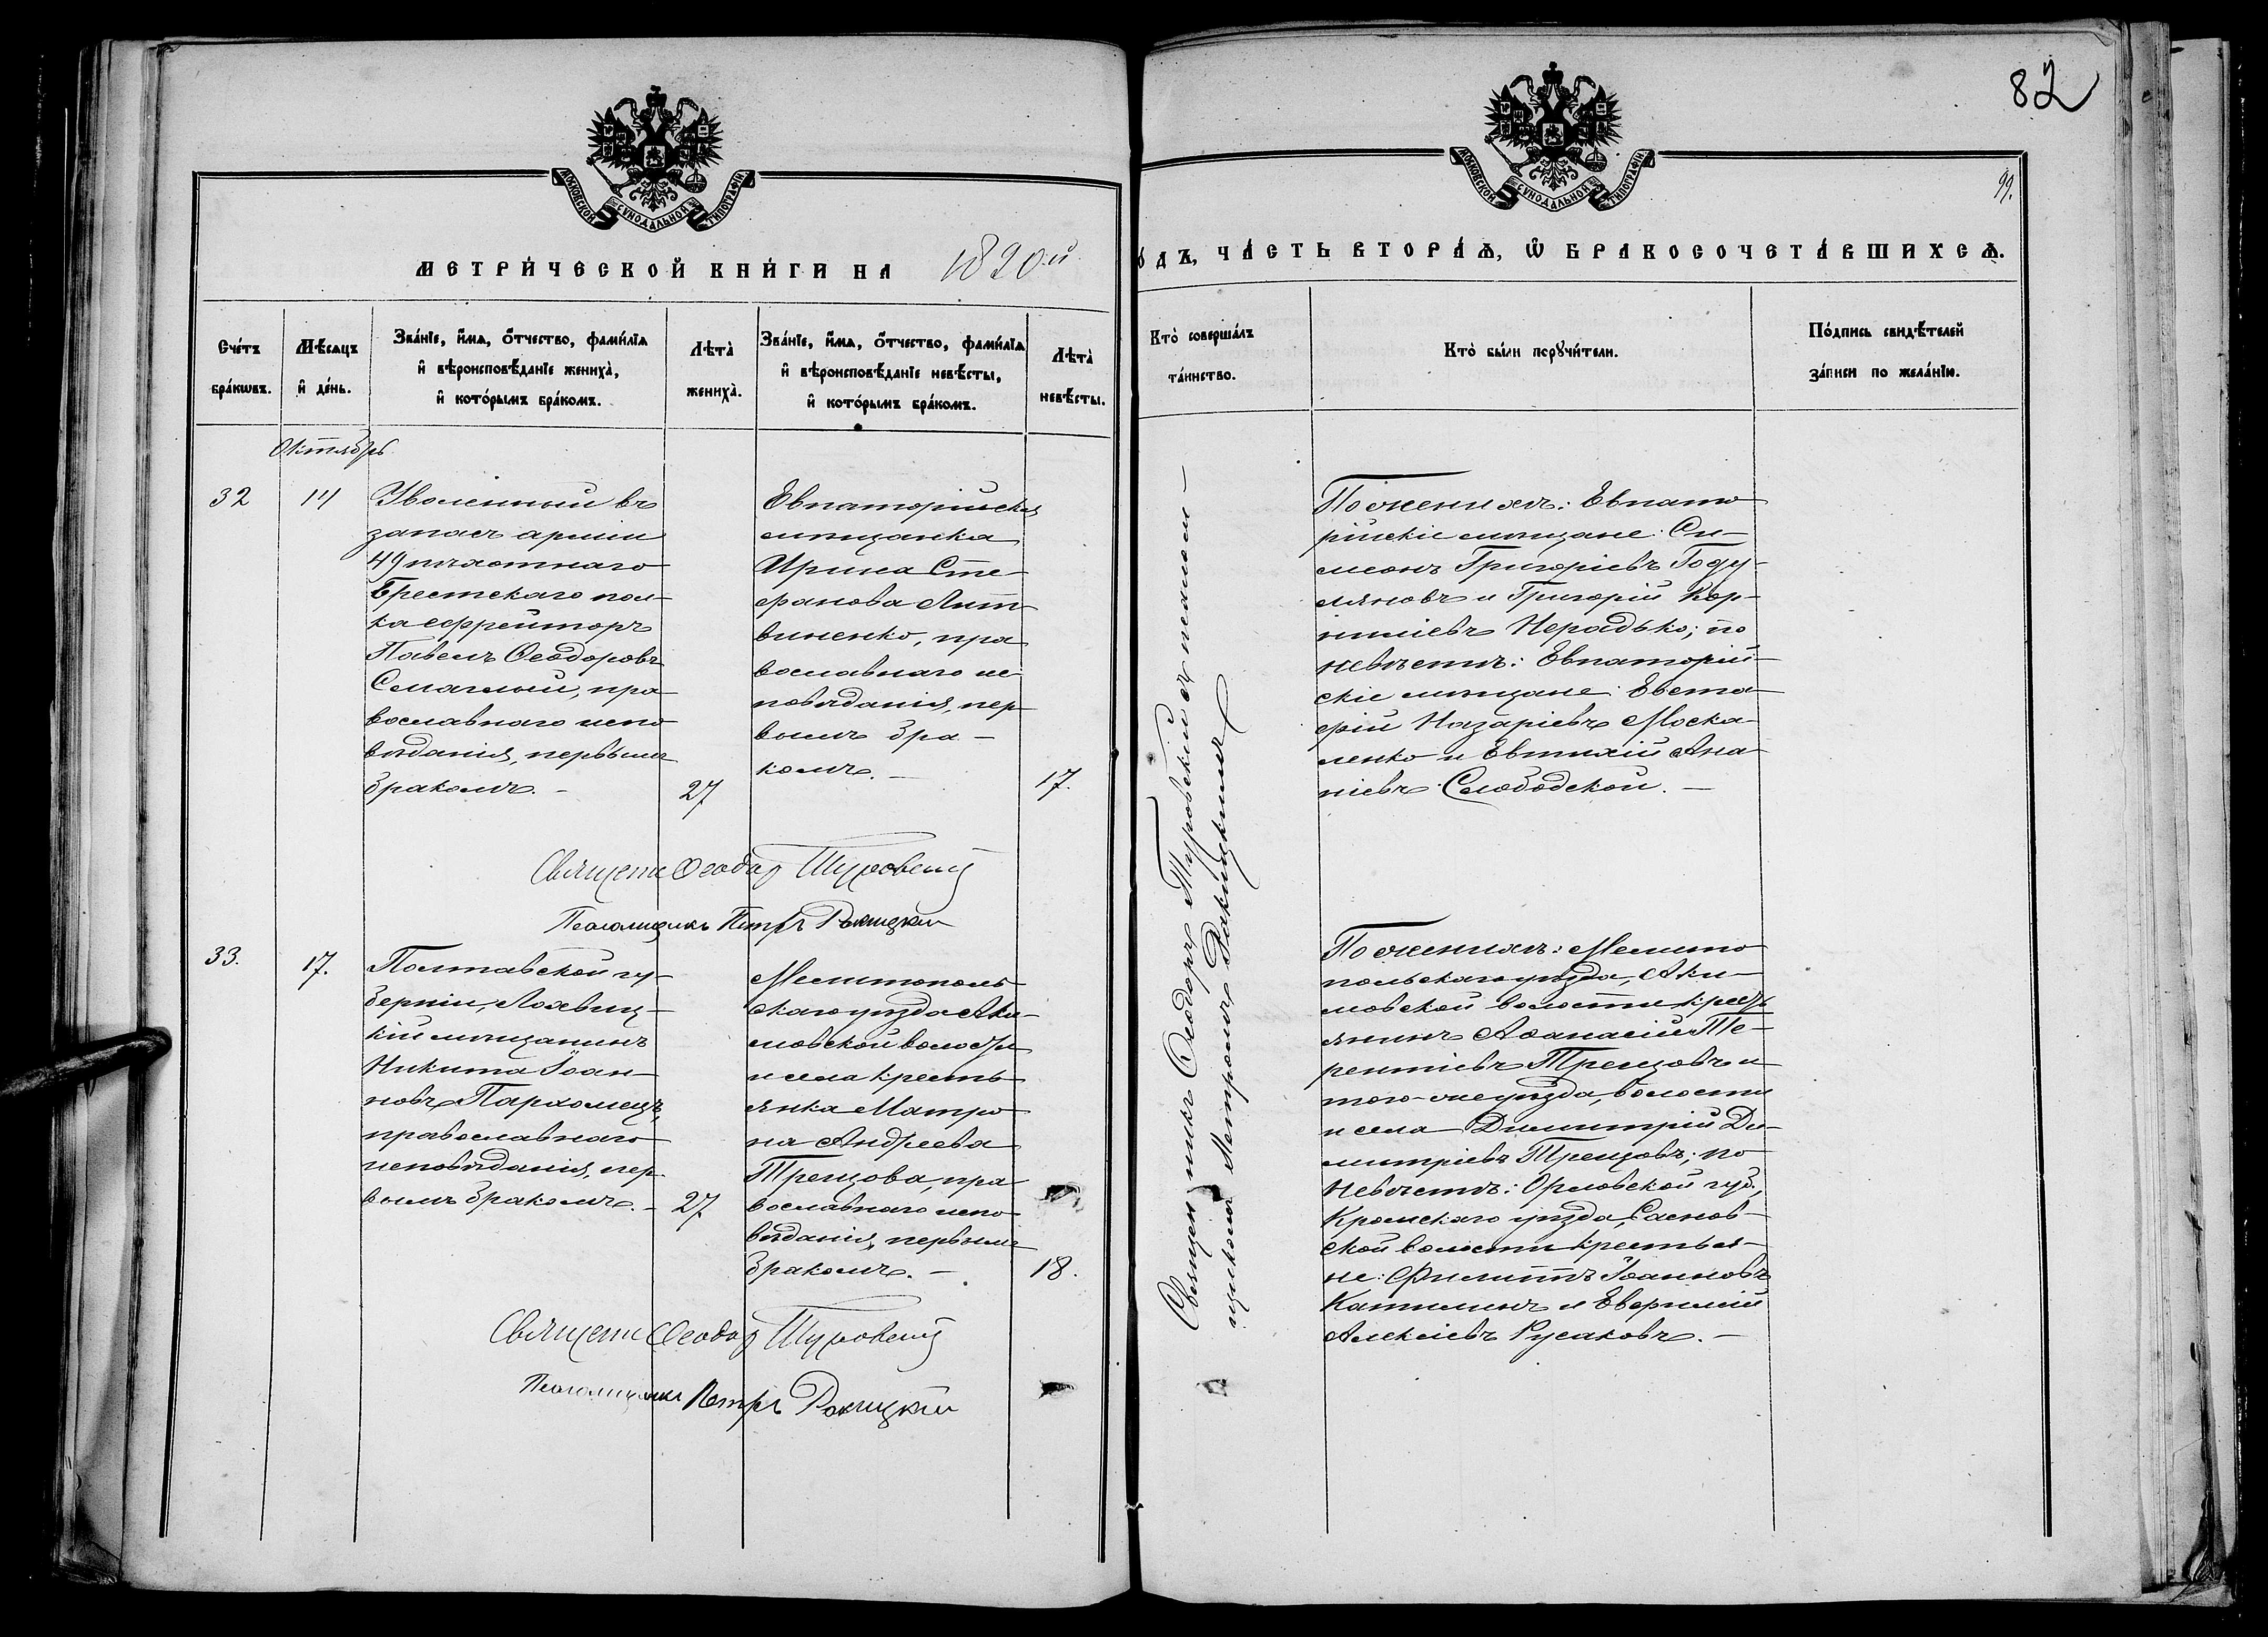 82
99.
МОСКОВСКОЙ СѴНОДАЛЬНОЙ ТИПОГРАФІИ.
МОСКОВСКОЙ СѴНОДАЛЬНОЙ ТИПОГРАФІИ.
МЕТРИ́ЧЕСКОЙ КНИ́ГИ НА 1890й
ОДЪ, ЧА́СТЬ ВТОРА́Ѧ, Ѡ҆ БРАКОСОЧЕТА́ВШИХСѦ.
Сче́тъ
бра́кѡвъ.
Мѣ́сяцъ
и҆ де́нь.
Зва́нїе, и҆́мѧ, ѻ҆́тчество, фами́лїѧ
и҆ вѣроисповѣ́данїе жениха̀,
и҆ кото́рымъ бра́комъ.
Лѣта̀
жениха̀.
Зва́нїе, и҆́мѧ, ѻ҆́тчество, фами́лїѧ
и҆ вѣроисповѣ́данїе невѣ́сты,
и҆ кото́рымъ бра́комъ.
Лѣта̀
невѣ́сты.
Кто̀ соверша́лъ
та́инство.
Кто̀ бы́ли порꙋчи́тели.
По́дпись свидѣ́телей
за́писи по жела́нїю.
Октябрь
32
14
Уволенный въ
запасъ арміи
49 пѣхотнаго
Брестскаго пол-
ка ефрейторъ
Павелъ Ѳеодоровъ
Смаглый, пра-
вославнаго испо
вѣданія, первымъ
бракомъ. -
27
Евпаторійская
мѣщанка
Ирина Сте
фанова Лит-
виненко, пра
вославнаго ис
повѣданія, пер
вымъ бра -
комъ. -
17.
Священникъ Ѳеодоръ Туровскій съ псалом-
щикомъ Петромъ Ракицкимъ
По женихѣ: Евпато
рійскіе мѣщане: Си-
меонъ Григоріевъ Году-
ляновъ и Григорій Кор-
ниліевъ Нерадько; по
невѣстѣ: Евпаторій-
скіе мѣщане: Евста-
фій Назаріевъ Моска-
ленко и Евтихій Ана
ніевъ Слободской. -
Священ Ѳеодор Туровский
Псаломщикъ Петръ Ракицкій
33.
17.
Полтавской гу-
берніи, Лохвиц-
кій мѣщанинъ
Никита Іоан-
новъ Пархомецъ,
православнаго
исповѣданія, пер
вымъ бракомъ. -
27
Мелитополь-
скаго уѣзда Аки-
мовской волости
и села кресть-
янка Матро-
на Андреева
Трещова, пра-
вославнаго испо
вѣданія, первымъ
бракомъ. -
18.
По женихѣ: Мелито
польскаго уѣзда, Аки-
мовской волости кресть
янинъ Аѳанасій Те-
рентіевъ Трещовъ и
того-же уѣзда, волости
и села Димитрій Ди-
митріевъ Трещовъ; по
невѣстѣ: Орловской губ.,
Кромскаго уѣзда, Саснов-
ской волости крестья-
не: Филиппъ Іоанновъ
Катилинъ и Евфимій
Алексіевъ Русаковъ. -
Священ Ѳеодор Туровский
Псаломщикъ Петръ Ракицкій